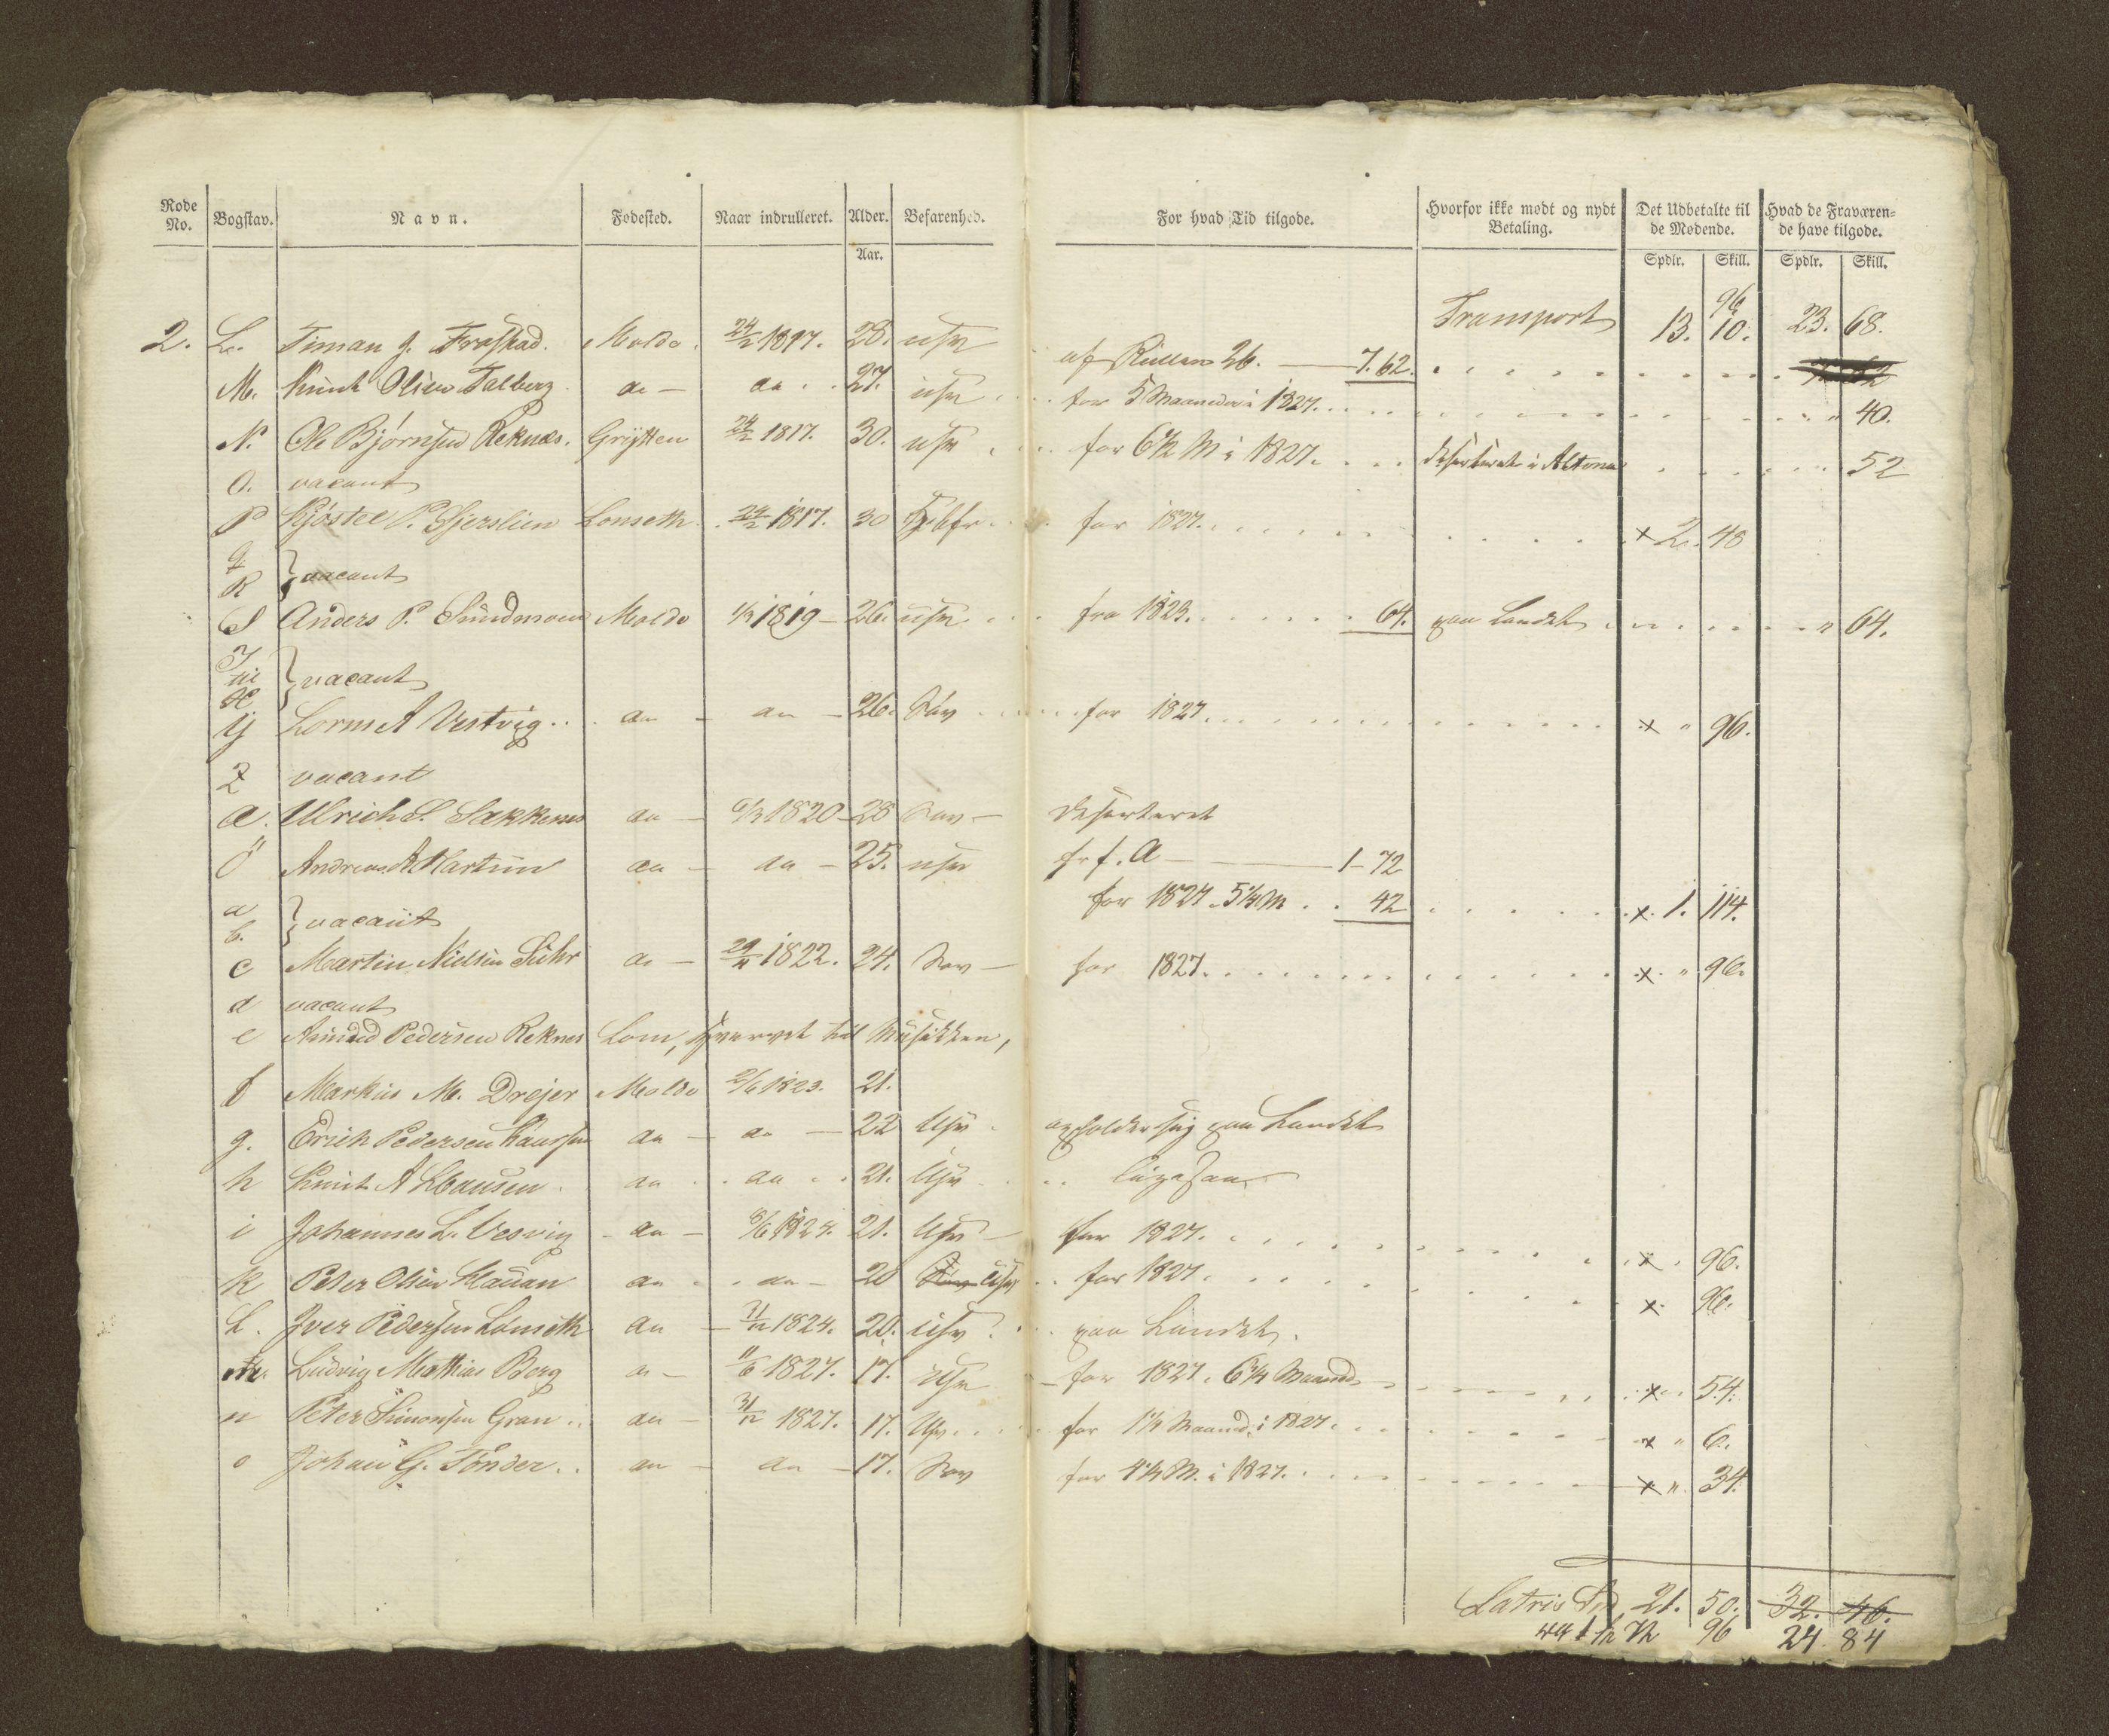 Rode No. Bogstav. Navn. Fødested. Naar indrulleret. Alder. Befarenhed. For hvad Tid tilgode. Hvorfor ikke mødt og nydt Betaling. Det Udbetalte til de Mødende. Hvad de Fraværen-de have tilgode.
Aar. Spdlr. Skill. Spdlr. Skill.
Transport 13. 96 10. 23. 68.
2. L. Timan J. Molde. 24/2 1817. 28. usv af Rullen 26. 7.62.
M. Knut Olsen Talberg do do 27. usv for 5 Maaneder i 1827. " 40.
N. Ole Bjørnsen Reknes. Grytten 24/2 1817. 30. usv for 6½ M i 1827. deserteret i Altona 52
O. vacant
P Kjøstel P. Gjerslien Lonseth 24/2 1817. 30 for 1827. x 2. 48
q R } vacant
S Anders P. Sundmoen Molde 1/2 1819 26. usv fra 1823. 64. paa Landet " 64.
T U X } vacant
Y A Vestvig do do 26. søv for 1827. x " 96.
Z vacant
Æ. Ulrich L. Sakkenes do 1820 28 søv deserteret
Ö Andreas A Martiin do do 25. usv 1-72
for 1827. 5¼ M 42 x 1. 114.
a b. } vacant
c Martin Nielsen Suhr do 1822. 24. søv for 1827. x " 96.
d vacant
e Amund Pedersen Reknes Lom, hvervet til Musikken,
f Markus M. Drejer Molde 2/6 1823. 21.
g. Erich Pedersen do do 22 Usv opholder sig paa Landet
h Knut A do do 21. Usv ligesaa
i Johannes L. Vesvig do 1824. 21. Usv for 1827. x " 96.
k Peter Olsen Hauan do do 20 usv for 1827. x 96.
L. Iver Pedersen Lonseth do 31/12 1824. 20. usv paa Landet.
m. Ludvig Mathias Berg do 11/6 1827. 17. usv for 1827. 6¾ Maaned x 54.
n Peter Simonsen Gran do 31/12 1827. 17. Usv for Maaned i 1827. x " 6.
o Johan G. Tönder do do 17. søv for 4¼ M. i 1827. x " 34.
Latris 21. 50. 32. 46.
96 24. 84